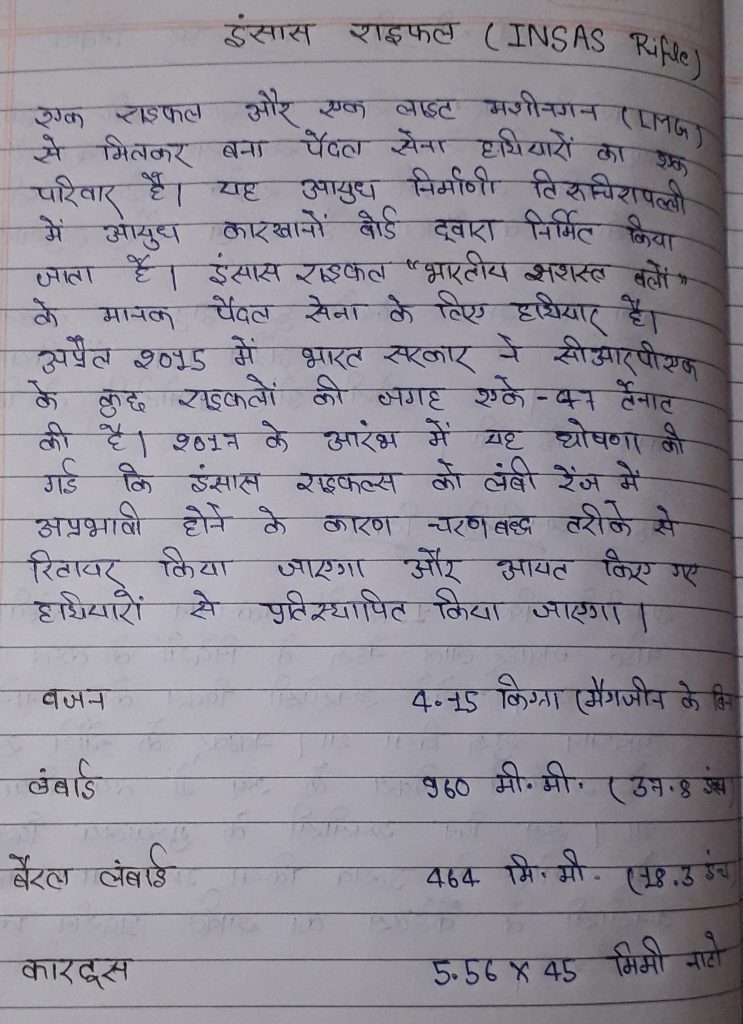 इंसास राइफल (INSAS Rifle)
एक राइफल और एक लाइट मशीनगन (LMG)
से मिलकर बना पैदल सेना हथियारों का एक
परिवार है। यह आयुध निर्माणी तिरूचिरापल्ली
में आयुध कारखानों बोर्ड द्वारा निर्मित किया
जाता है। इंसास राइफल "भारतीय सशस्त बलों"
के मानक पैदल सेना के लिए हथियार है।
अप्रैल 2015 में भारत सरकार ने सीआरपीएफ
के कुछ राइफलों की जगह एके-47 तैनात
की है। 2017 के आरंभ में यह घोषणा की
गई कि इंसास राइफल्स को लंबी रेंज में
अप्रभावी होने के कारण चरणबद्ध तरीके से
रिटायर किया जाएगा और आयत किए गए
हथियारों से प्रतिस्थापित किया जाएगा।
वजन 4.15 किग्रा (मैगजीन के बिन
लंबाई 960 मी.मी. (37.8 इंच
बैरल लंबाई 464 मि.मी. (18.3 इंच
कारतूस 5.56 x 45 मिमी नाटो